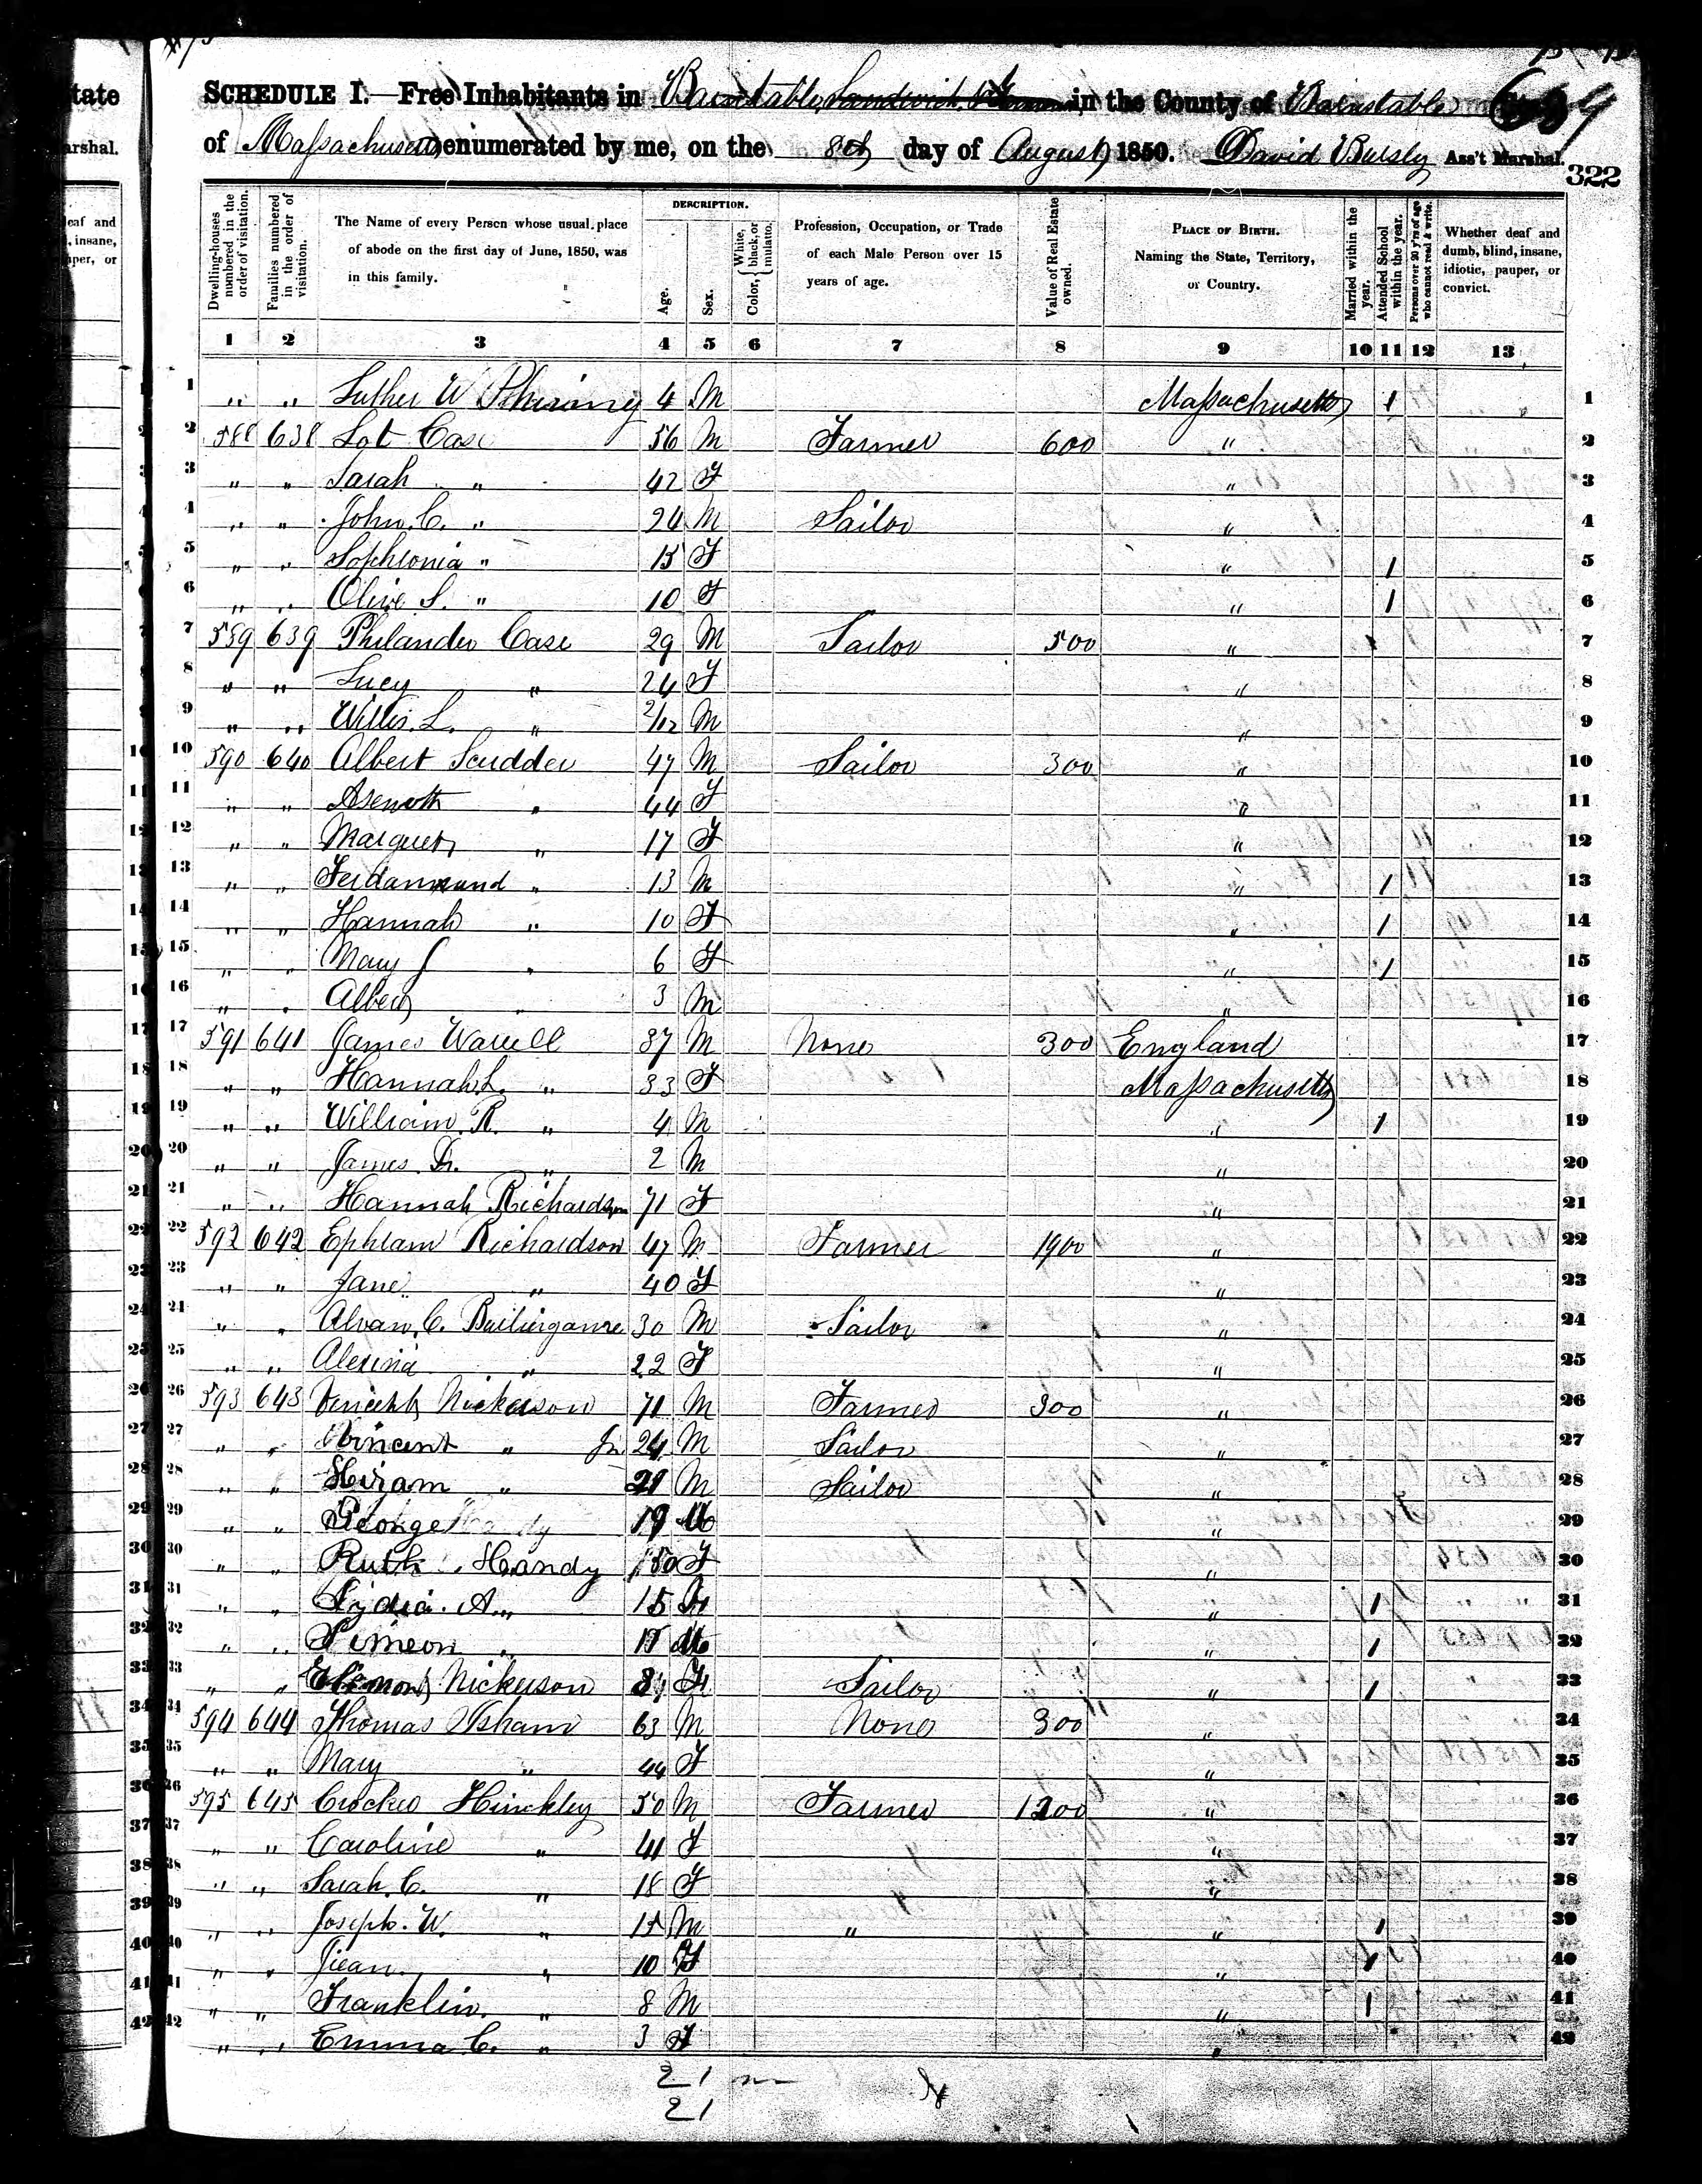 SCHEDULE I.—Free Inhabitants in Barnstable, Sandwich in the County of Barnstable
of Massachusetts enumerated by me, on the 8th day of August 1850. David Bursley Ass't Marshal.
322
tate
arshal.
eaf and
, insane,
uper, or
Dwelling-houses numbered in the order of visitation.
Families numbered in the order of visitation.
The Name of every Person whose usual place of abode on the first day of June, 1850, was in this family.
DESCRIPTION.
Age.
Sex.
Color, { White, black, or mulatto.
Profession, Occupation, or Trade of each Male Person over 15 years of age.
Value of Real Estate owned.
PLACE OF BIRTH. Naming the State, Territory, or Country.
Married within the year.
Attended School within the year.
Persons over 20 y'rs of age who cannot read & write.
Whether deaf and dumb, blind, insane, idiotic, pauper, or convict.
1 2 3 4 5 6 7 8 9 10 11 12 13
1 " " Luther W 4 M Massachusetts 1 1
2 588 638 Lot Case 56 M Farmer 600 " 2
3 " " Sarah " 42 F " 3
4 " " John C. " 24 M Sailor " 4
5 " " Sophronia " 15 F " 1 5
6 " " Olive S. " 10 F " 1 6
7 589 639 Philander Case 29 M Sailor 500 " 1 7
8 " " Lucy " 24 F " 8
9 " " Willis L. " 2/12 M " 9
10 590 640 Albert Scudder 47 M Sailor 300 " 10
11 " " Asenath " 44 F " 11
12 " " Marguret " 17 F " 12
13 " " " 13 M " 1 13
14 " " Hannah " 10 F " 1 14
15 " " Mary J " 6 F " 1 15
16 " " Albert " 3 M " 16
17 591 641 James Warell 37 M None 300 England 17
18 " " Hannah L. " 33 F Massachusetts 18
19 " " William R. " 4 M " 1 19
20 " " James " 2 M " 20
21 " " Hannah Richardson 71 F " 21
22 592 642 Ephram Richardson 47 M Farmer 1900 " 22
23 " " Jane " 40 F " 23
24 " " Alvan C. 30 M Sailor " 24
25 " " " 22 F " 25
26 593 643 Nickerson 71 M Farmer 300 " 26
27 " " Vincent " Jr 24 M Sailor " 27
28 " " Hiram " 21 M Sailor " 28
29 " " George Handy 19 M " 29
30 " " Ruth Handy 50 F " 30
31 " " Lydia A. " 15 F " 1 31
32 " " Simeon " M " 1 32
33 " " Nickerson Sailor " 1 33
34 594 644 Thomas Isham 63 M None 300 " 34
35 " " Mary " 44 F " 35
36 595 645 Crocker Hinckley 50 M Farmer 1200 " 36
37 " " Caroline " 41 F " 37
38 " " Sarah C. " 18 F " 38
39 " " Joseph W. " 15 M " " 1 39
40 " " " 10 F " 1 40
41 " " Franklin " 8 M " 1 41
42 " " Emma C. " 3 F " 42
21 m
21